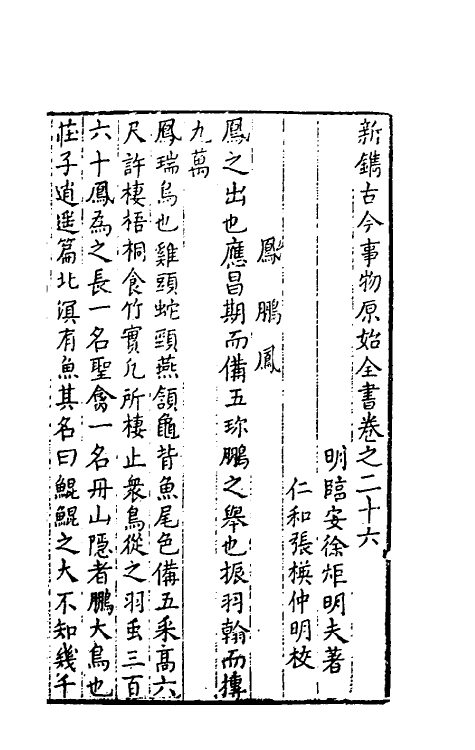 新鐫古今事物原始全書卷之二十六
明臨安徐炬明夫著
仁和張模仲明校
鳳 鵬 鳳
鳳之出也應昌期而備五珎鵬之舉也振羽翰而摶
九萬
鳳瑞鳥也雞頭蛇頸燕頷龜背魚尾色備五采髙六
尺許棲梧桐食竹實凢所棲止衆鳥從之羽虫三百
六十鳳為之長一名聖禽一名丹山隠者鵬大鳥也
莊子逍遥篇北溟有魚其名曰鯤鯤之大不知幾千